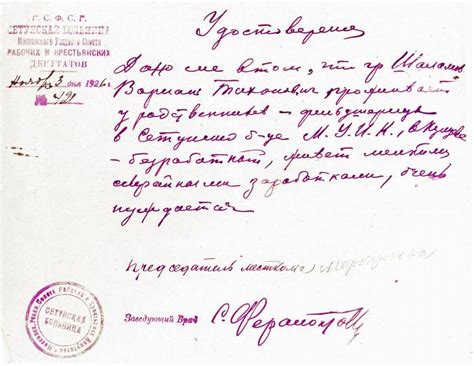 Р.С.Ф.С.Р.
СЕТУНСКАЯ БОЛЬНИЦА
Московского Уездного Совета
РАБОЧИХ и КРЕСТЬЯНСКИХ
ДЕПУТАТОВ
Ноября 3 дня 1926 г.
№ 421
Удостоверение
Дано сие в том, что гр. Шаламов
Варлам Тихонович проживает
у родственников - фельдшерицы
в Сетунской б-це М.У.И.К.,
- безработный, живет мелкими
случайными заработками, очень
нуждается
Председатель месткома Меркулова
Заведующий Врач С.
СЕТУНСКАЯ
БОЛЬНИЦА